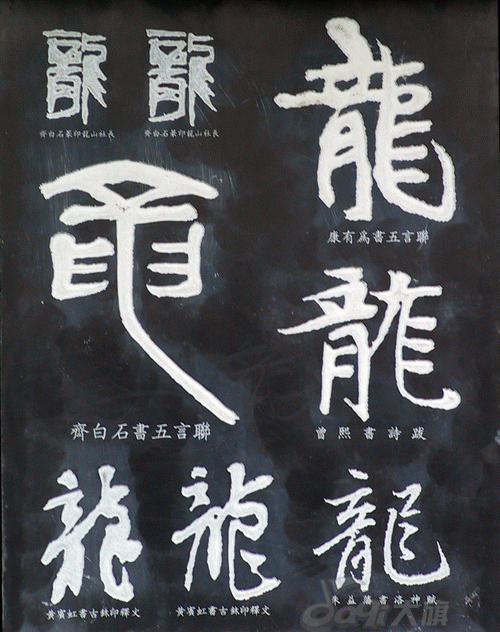 龍 龍
齊白石篆印龍山社長 齊白石篆印龍山社長
龍
康有爲書五言聯
龍
齊白石書五言聯
龍
曾熙書詩跋
龍 龍 龍
黃賓虹書古鉥印釋文 黃賓虹書古鉥印釋文 朱益藩書洛神賦
大旗